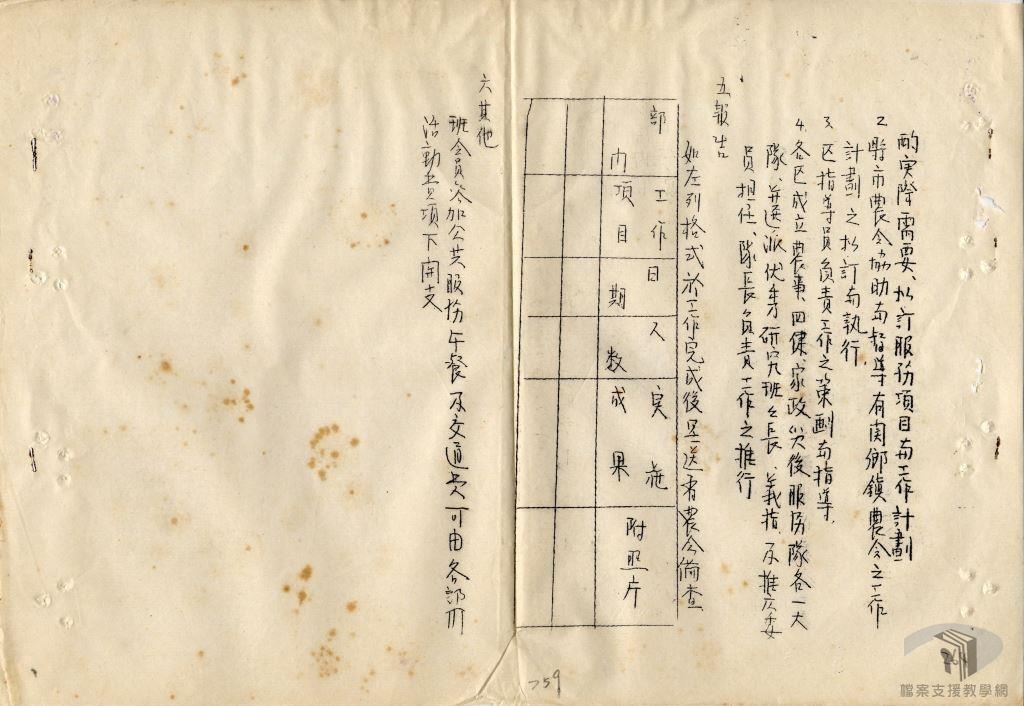 酌実际需要、拟訂服務項目与工作計劃
2. 縣市農会協助与督導有関鄉鎮農会之工作
計劃之拟訂与執行.
3. 区指導員負責工作之策劃与指導.
4. 各区成立農事、四健、家政災後服務隊各一大
隊、並選派优秀研究班班長、義指及推広委
員担任、隊長負責工作之推行
五、報告
如左列格式於工作完成後呈送省農会俻查
部内
工作項目
日期
人数
実施成果
附照片
六其他
班会員参加公共服務午餐及交通费可由各部門
活動费項下開支
759
264
檔案支援教學網